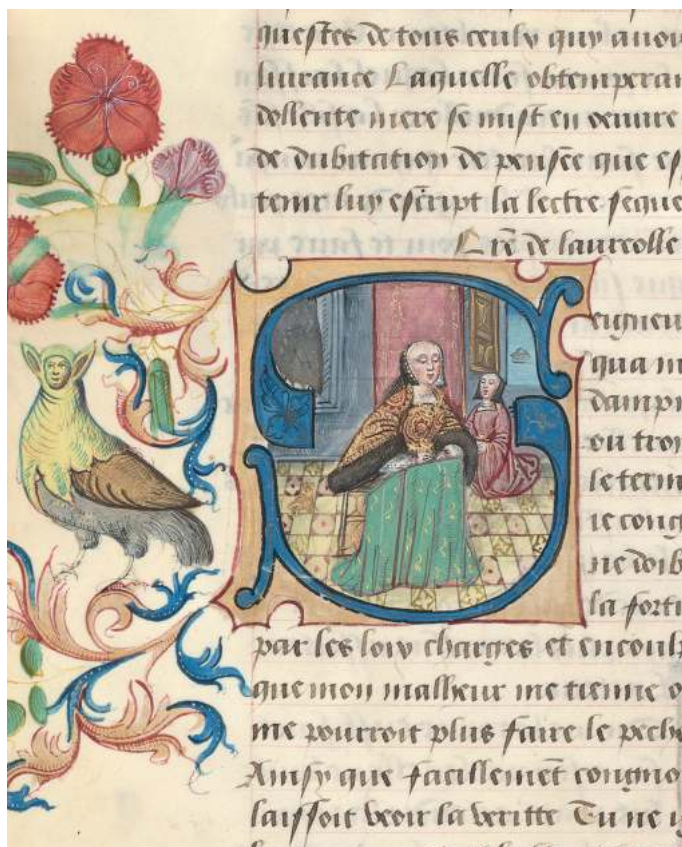 questes de tous ceulx quy avoi
livrance Laquelle obtempera
dollente mere se mist en oeuvre
de dubitation de pensee que es
tenir luy escript la lectre seque
Lrē de laureolle
Seigneu
qua m
dampn
ou tro
le term
ie cong
ne doib
la fort
par les loix charges et encoul
que mon malheur me tienne o
me pourroit plus faire le pech
Ainsy que facillemēt congno
laissoit veoir la veritte Tu ne i